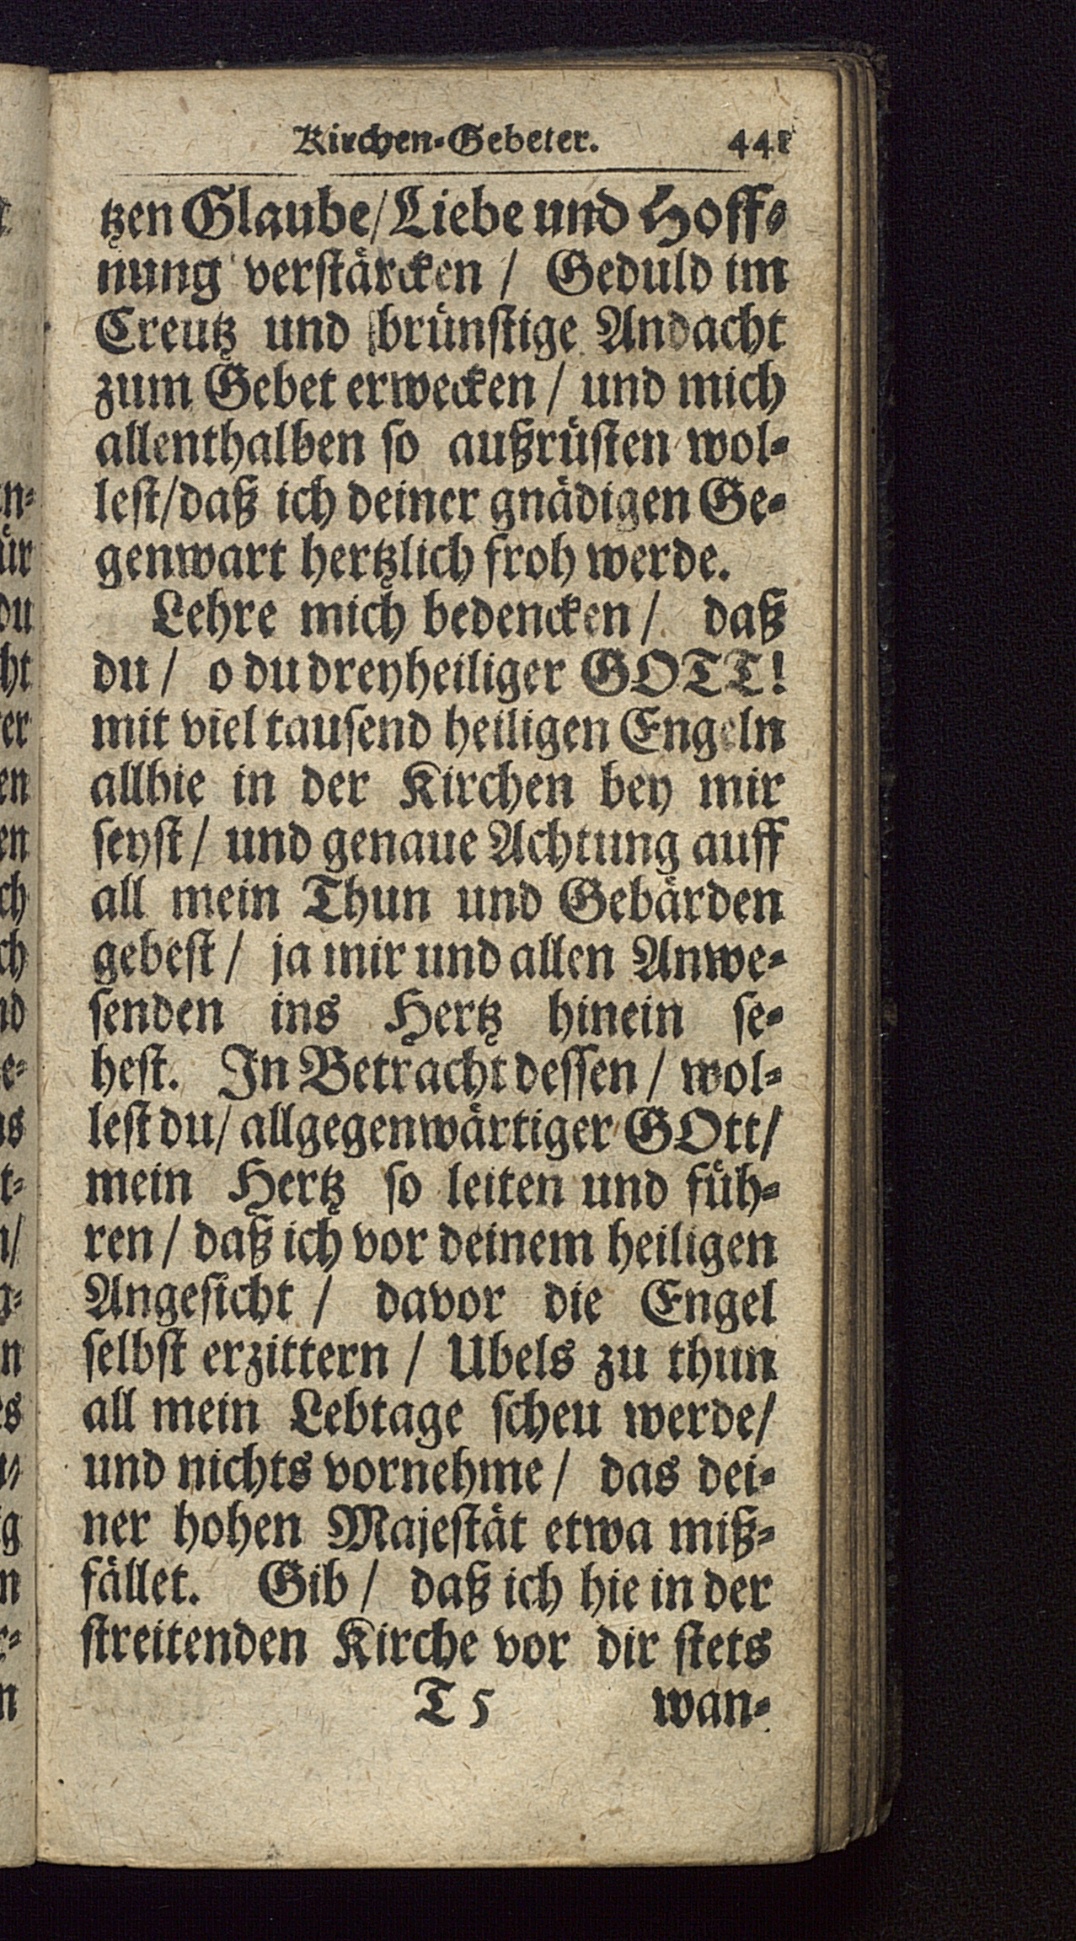 Kirchen-Gebeter. 441
tzen Glaube/Liebe und Hoff-
nung verstärcken / Geduld im
Creutz und brünstige Andacht
zum Gebet erwecken / und mich
allenthalben so außrüsten wol-
lest/daß ich deiner gnädigen Ge-
genwart hertzlich froh werde.
Lehre mich bedencken / daß
du / o du dreyheiliger GOTT!
mit viel tausend heiligen Engeln
allhie in der Kirchen bey mir
seyst / und genaue Achtung auff
all mein Thun und Gebärden
gebest / ja mir und allen Anwe-
senden ins Hertz hinein se-
hest. In Betracht dessen / wol-
lest du/ allgegenwärtiger GOtt/
mein Hertz so leiten und füh-
ren / daß ich vor deinem heiligen
Angesicht / davor die Engel
selbst erzittern / Ubels zu thun
all mein Lebtage scheu werde/
und nichts vornehme / das dei-
ner hohen Majestät etwa miß-
fället. Gib / daß ich hie in der
streitenden Kirche vor dir stets
T 5 wan-